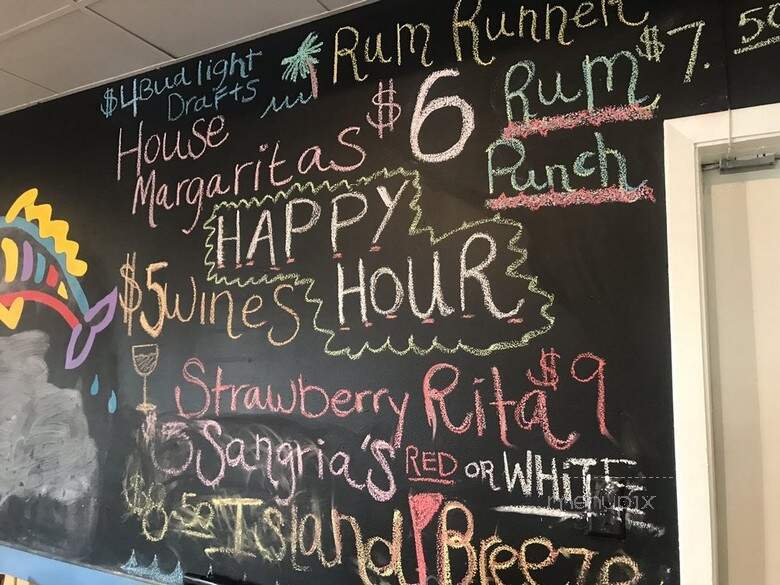 Rum Runner
$7.50
$4 Bud light
Drafts
House
Margaritas $6
Rum
Punch
HAPPY
HOUR
$5 wines
Strawberry Rita $9
5 Sangria's RED OR WHITE
$8.50 Island Breeze
menupix